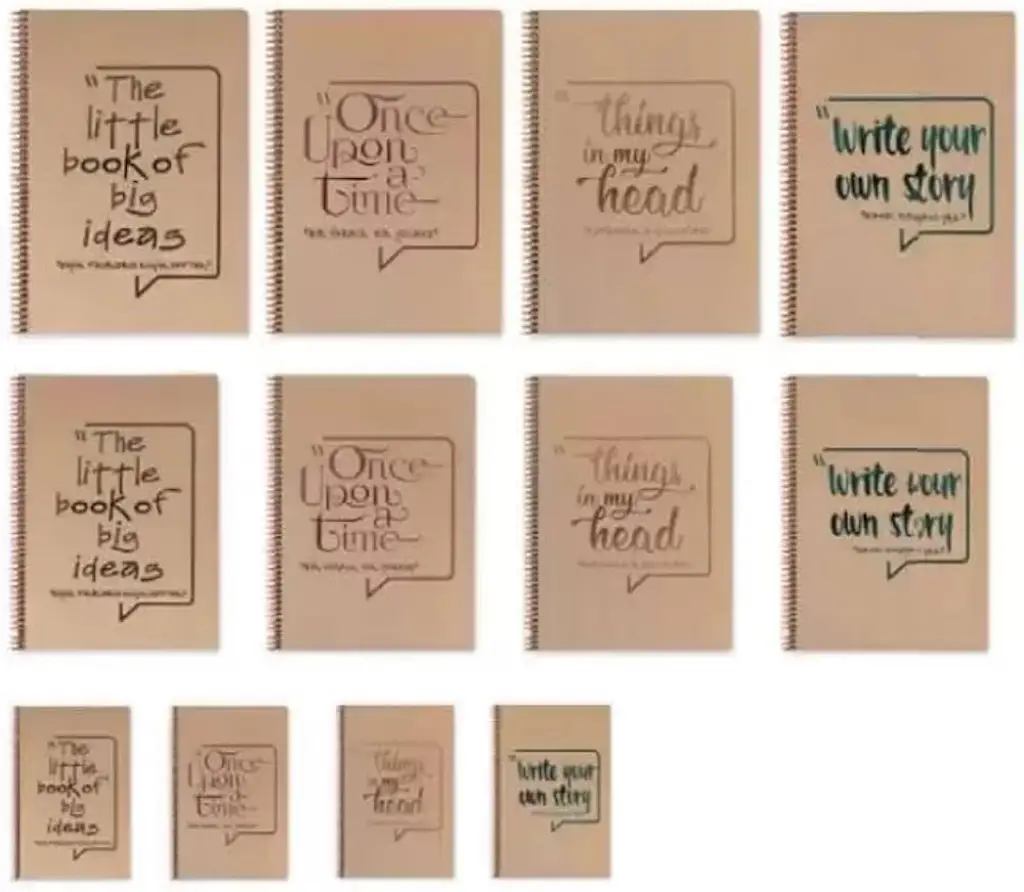 "The
little
book of
big
ideas
"Once
Upon
a
time
"things
in my
head
"Write your
own story
"The
little
book of
big
ideas
"Once
Upon
a
time
"things
in my
head
"Write your
own story
"The
little
book of
big
ideas
"Once
Upon
a
time
things
in my
head
"Write your
own story